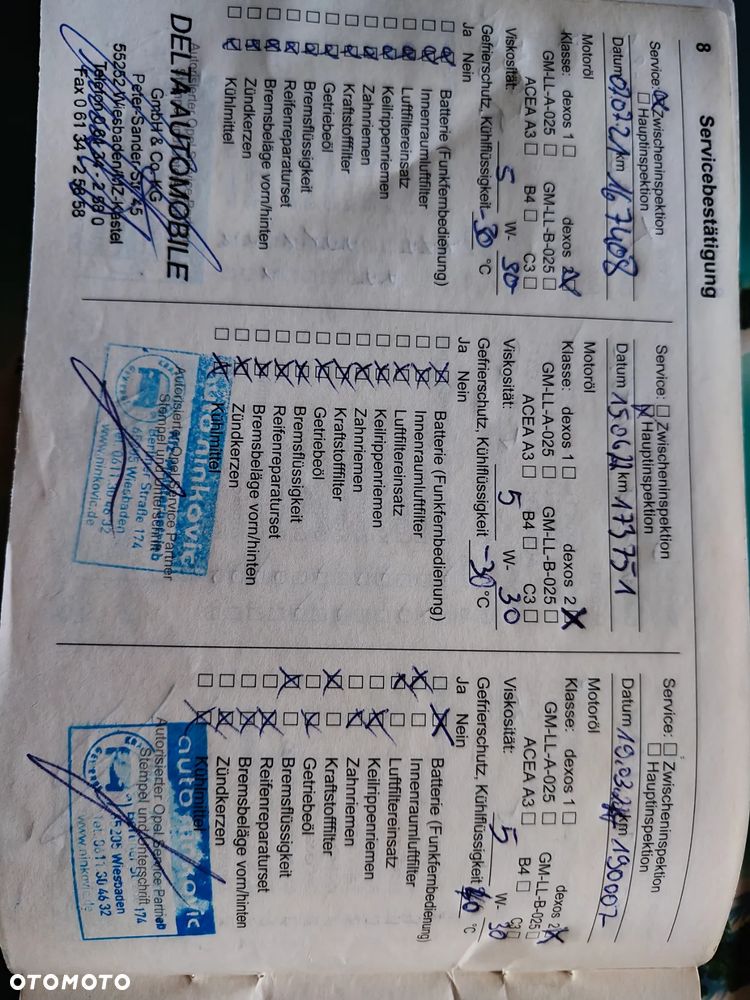 8
Servicebestätigung
Service: ☒ Zwischeninspektion
☐ Hauptinspektion
Datum 01.07.21 km 167408
Motoröl
Klasse: dexos 1 ☐ dexos 2 ☒
GM-LL-A-025 ☐ GM-LL-B-025 ☐
ACEA A3 ☐ B4 ☐ C3 ☐
Viskosität: 5 W- 30
Gefrierschutz, Kühlflüssigkeit -30 °C
Ja Nein
☐ ☒ Batterie (Funkfernbedienung)
☐ ☒ Innenraumluftfilter
☐ ☒ Luftfiltereinsatz
☐ ☒ Keilrippenriemen
☐ ☒ Zahnriemen
☐ ☒ Kraftstofffilter
☐ ☒ Getriebeöl
☐ ☒ Bremsflüssigkeit
☐ ☒ Reifenreparaturset
☐ ☒ Bremsbeläge vorn/hinten
☐ ☒ Zündkerzen
☐ ☒ Kühlmittel
Autorisierter Opel
DELTA AUTOMOBILE
GmbH & Co. KG
Peter-Sander-Str. 45
55252 Wiesbaden/MZ-Kastel
Fax 0 61 34 - 2
Service: ☐ Zwischeninspektion
☒ Hauptinspektion
Datum 15.06.22 km 173751
Motoröl
Klasse: dexos 1 ☐ dexos 2 ☒
GM-LL-A-025 ☐ GM-LL-B-025 ☐
ACEA A3 ☐ B4 ☐ C3 ☐
Viskosität: 5 W- 30
Gefrierschutz, Kühlflüssigkeit -30 °C
Ja Nein
☐ ☒ Batterie (Funkfernbedienung)
☐ ☒ Innenraumluftfilter
☐ ☒ Luftfiltereinsatz
☐ ☒ Keilrippenriemen
☐ ☒ Zahnriemen
☐ ☒ Kraftstofffilter
☐ ☒ Getriebeöl
☐ ☒ Bremsflüssigkeit
☐ ☒ Reifenreparaturset
☐ ☒ Bremsbeläge vorn/hinten
☐ ☒ Zündkerzen
☐ ☒ Kühlmittel
auto ninkovic
Autorisierter Opel Service Partner
Stempel und Unterschrift
Berliner Straße 174
65205 Wiesbaden
Tel. 0611.30 46 32
www.ninkovic.de
Service: ☐ Zwischeninspektion
☐ Hauptinspektion
Datum 19.03.24 km 190007
Motoröl
Klasse: dexos 1 ☐ dexos 2 ☒
GM-LL-A-025 ☐ GM-LL-B-025 ☐
ACEA A3 ☐ B4 ☐ C3 ☐
Viskosität: 5 W- 30
Gefrierschutz, Kühlflüssigkeit °C
Ja Nein
☐ ☒ Batterie (Funkfernbedienung)
☒ ☐ Innenraumluftfilter
☒ ☐ Luftfiltereinsatz
☐ ☒ Keilrippenriemen
☐ ☒ Zahnriemen
☒ ☐ Kraftstofffilter
☐ ☒ Getriebeöl
☒ ☐ Bremsflüssigkeit
☐ ☒ Reifenreparaturset
☐ ☒ Bremsbeläge vorn/hinten
☐ ☒ Zündkerzen
☐ ☒ Kühlmittel
auto ninkovic
Autorisierter Opel Service Partner
Stempel und Unterschrift
174
65205 Wiesbaden
Tel. 0611 30 46 32
www.ninkovic.de
OTOMOTO